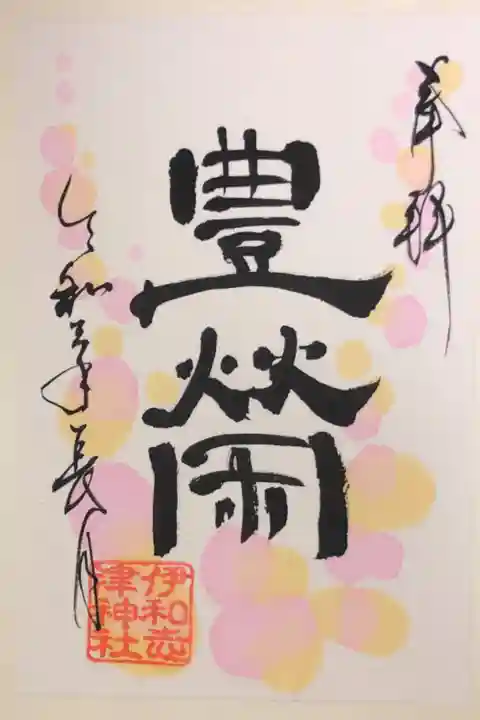 奉拝
豊榮
令和三年長月
伊和志
津神社